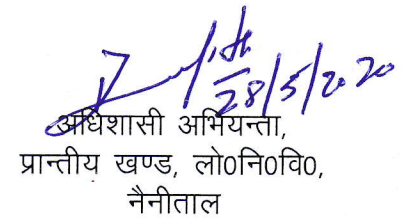 28/5/2020
अधिशासी अभियन्ता,
प्रान्तीय खण्ड, लो0नि0वि0,
नैनीताल